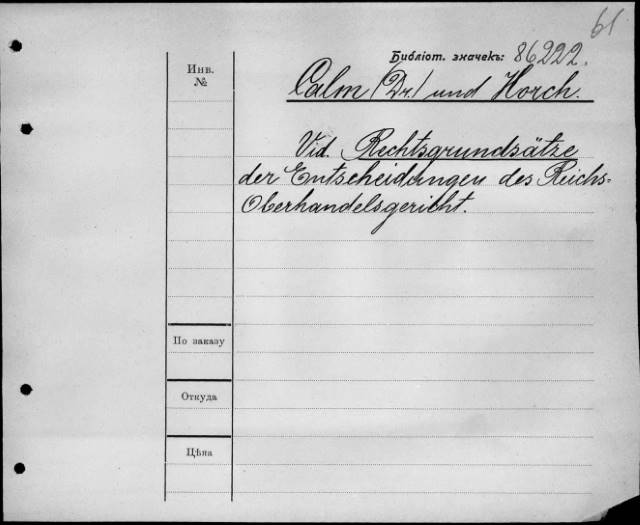 61
Библіот. значекъ: 86222.
Инв. №
Calm (Dr.) und Horch.
Vid. Rechtsgrundsätze
der Entscheidungen des Reichs-
Oberhandelsgericht.
По заказу
Откуда
Цѣна